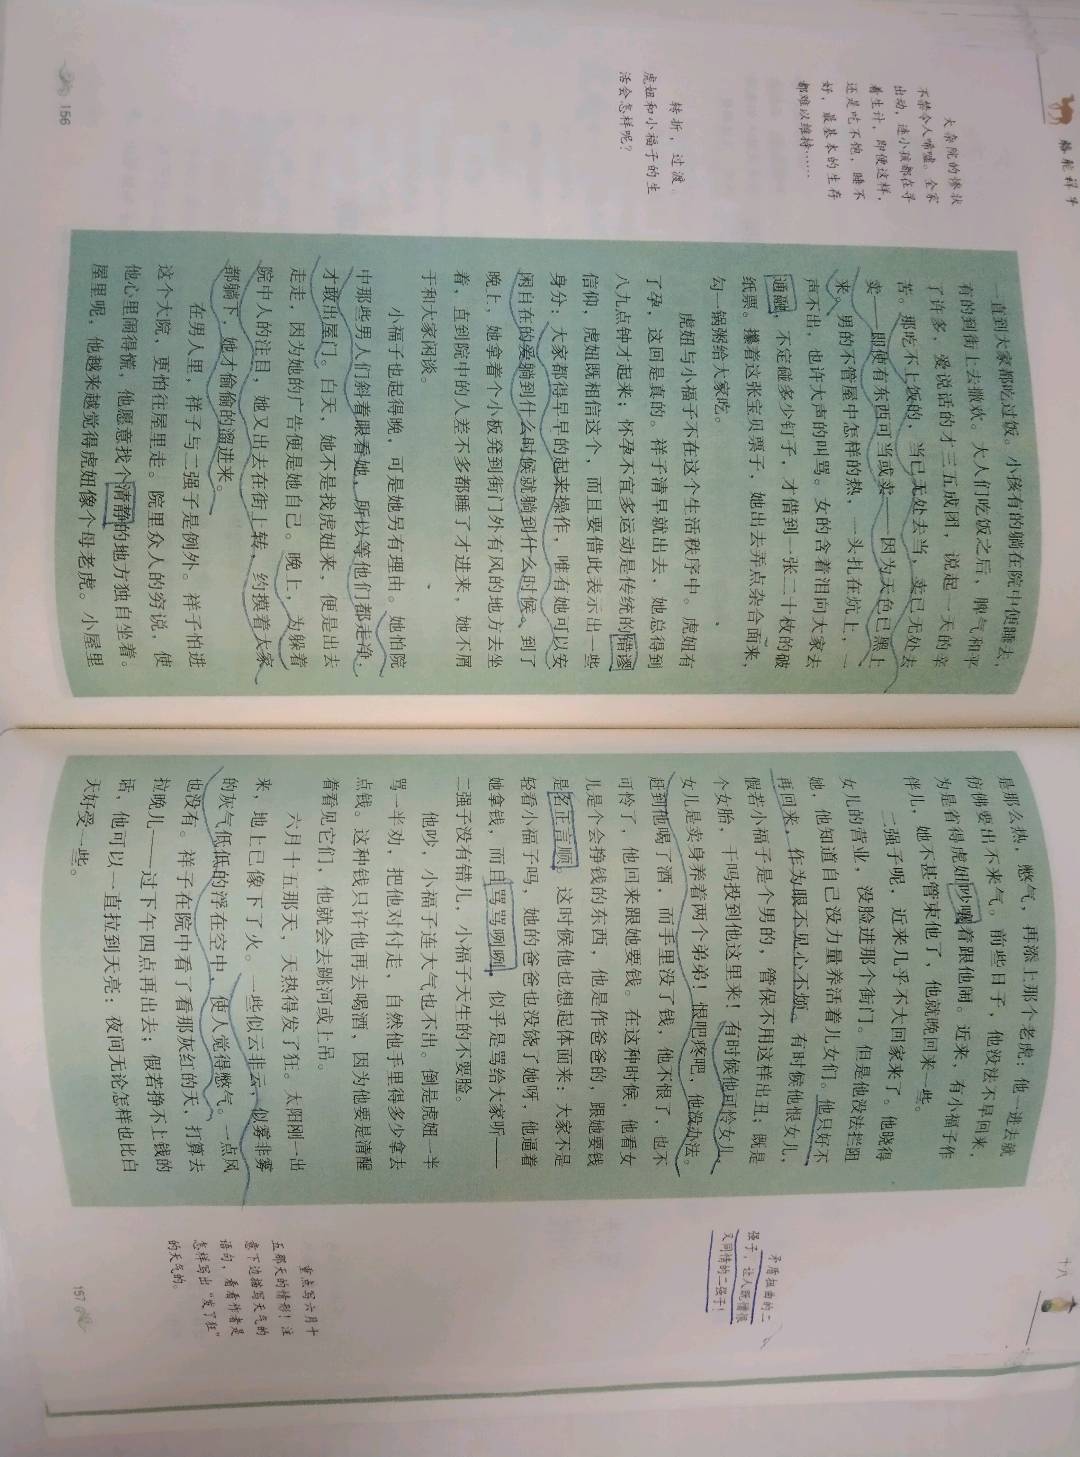 骆驼祥子
大杂院的惨状
不禁令人唏嘘。全家
出动，连小孩都在寻
着生计，即使这样，
还是吃不饱，睡不
好，最基本的生存
都难以维持……
转折，过渡。
虎妞和小福子的生
活会怎样呢？
一直到大家都吃过饭。小孩有的躺在院中便睡去，
有的到街上去撒欢。大人们吃饭之后，脾气和平
了许多，爱说话的才三五成团，说起一天的辛
苦。那吃不上饭的，当已无处去当，卖已无处去
卖——即使有东西可当或卖——因为天色已黑上
来。男的不管屋中怎样的热，一头扎在炕上，一
声不出，也许大声的叫骂。女的含着泪向大家去
通融，不定碰多少钉子，才借到一张二十枚的破
纸票。攥着这张宝贝票子，她出去弄点杂合面来，
勾一锅粥给大家吃。
虎妞与小福子不在这个生活秩序中。虎妞有
了孕，这回是真的。祥子清早就出去，她总得到
八九点钟才起来；怀孕不宜多运动是传统的错谬
信仰，虎妞既相信这个，而且要借此表示出一些
身分：大家都得早早的起来操作，唯有她可以安
闲自在的爱躺到什么时候就躺到什么时候。到了
晚上，她拿着个小板凳到街门外有风的地方去坐
着，直到院中的人差不多都睡了才进来，她不屑
于和大家闲谈。
小福子也起得晚，可是她另有理由。她怕院
中那些男人们斜着眼看她，所以等他们都走净，
才敢出屋门。白天，她不是找虎妞来，便是出去
走走，因为她的广告便是她自己。晚上，为躲着
院中人的注目，她又出去在街上转，约摸着大家
都躺下，她才偷偷的溜进来。
在男人里，祥子与二强子是例外。祥子怕进
这个大院，更怕往屋里走。院里众人的穷说，使
他心里闹得慌，他愿意找个清静的地方独自坐着。
屋里呢，他越来越觉得虎妞像个母老虎。小屋里
156
十八
是那么热，憋气，再添上那个老虎；他一进去就
仿佛要出不来气。前些日子，他没法不早回来，
为是省得虎妞吵嚷着跟他闹。近来，有小福子作
伴儿，她不甚管束他了，他就晚回来一些。
二强子呢，近来几乎不大回家来了。他晓得
女儿的营业，没脸进那个街门。但是他没法拦阻
她，他知道自己没力量养活着儿女们。他只好不
再回来，作为眼不见心不烦。有时候他恨女儿，
假若小福子是个男的，管保不用这样出丑；既是
个女胎，干吗投到他这里来！有时候他可怜女儿，
女儿是卖身养着两个弟弟！恨吧疼吧，他没办法。
赶到他喝了酒，而手里没了钱，他不恨了，也不
可怜了，他回来跟她要钱。在这种时候，他看女
儿是个会挣钱的东西，他是作爸爸的，跟她要钱
是名正言顺。这时候他也想起体面来：大家不是
轻看小福子吗，她的爸爸也没饶了她呀，他逼着
她拿钱，而且骂骂咧咧，似乎是骂给大家听——
二强子没有错儿，小福子天生的不要脸。
他吵，小福子连大气也不出。倒是虎妞一半
骂一半劝，把他对付走，自然他手里得多少拿去
点钱。这种钱只许他再去喝酒，因为他要是清醒
着看见它们，他就会去跳河或上吊。
六月十五那天，天热得发了狂。太阳刚一出
来，地上已像下了火。一些似云非云，似雾非雾
的灰气低低的浮在空中，使人觉得憋气。一点风
也没有。祥子在院中看了看那灰红的天，打算去
拉晚儿——过下午四点再出去；假若挣不上钱的
话，他可以一直拉到天亮：夜间无论怎样也比白
天好受一些。
矛盾扭曲的二
强子，让人既憎恨
又同情的二强子！
重点写六月十
五那天的情形！注
意下边描写天气的
语句，看看作者是
怎样写出“发了狂”
的天气的。
157